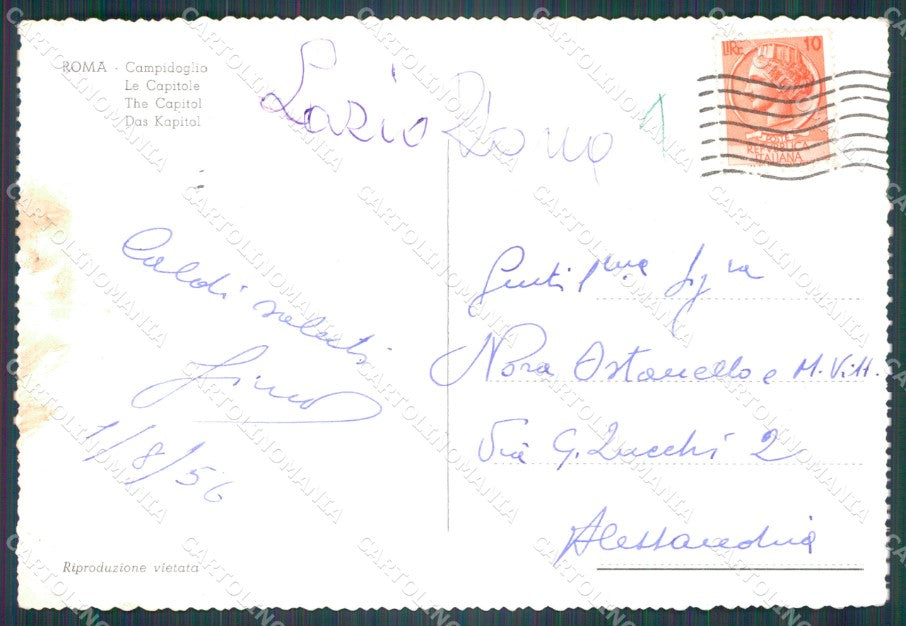 ROMA - Campidoglio
Le Capitole
The Capitol
Das Kapitol
Lazio Roma 1
LIRE 10
REPVBBLICA
ITALIANA
Caldi saluti
1/8/56
Gentil.ma Sig.ra
Nora Ostanello e M. Vitt.
Via G. Zucchi 2
Alessandria
Riproduzione vietata
CARTOLINOMANIA